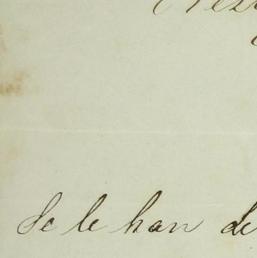 Se le han de